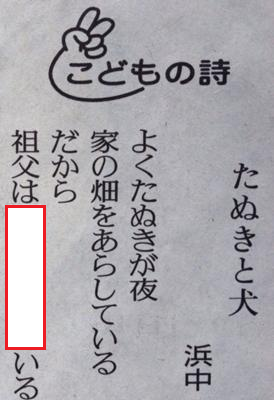 こどもの詩
たぬきと犬
浜中
よくたぬきが夜
家の畑をあらしている
だから
祖父は
いる